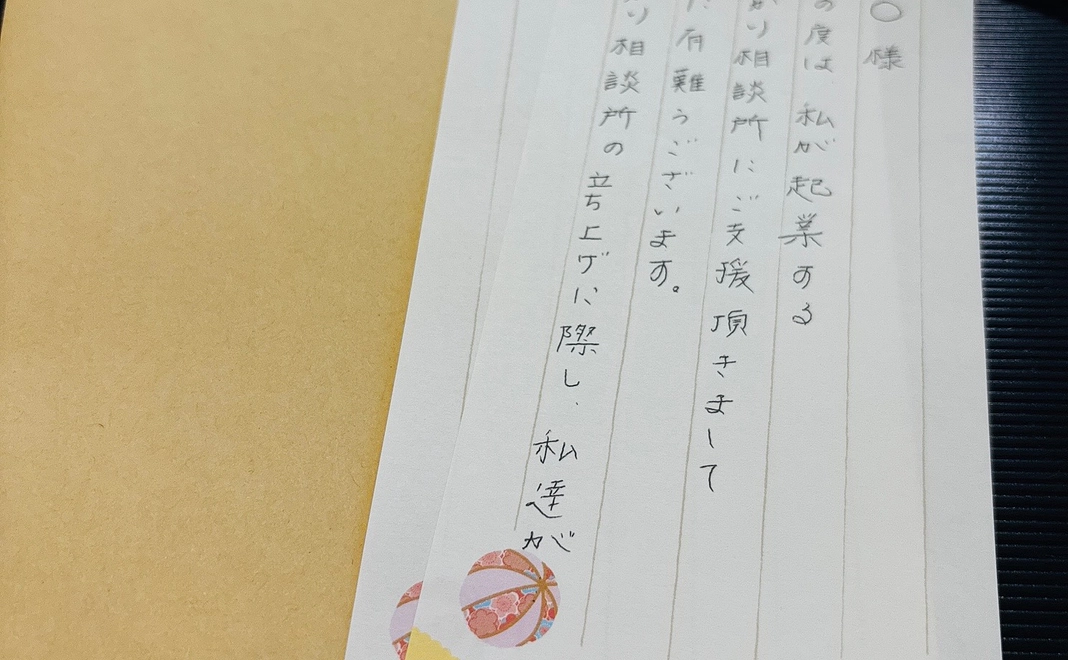 ○様
の度は、私が起業する
かり相談所にご支援頂きまして
有難うございます。
り相談所の立ち上げに際し、私達が